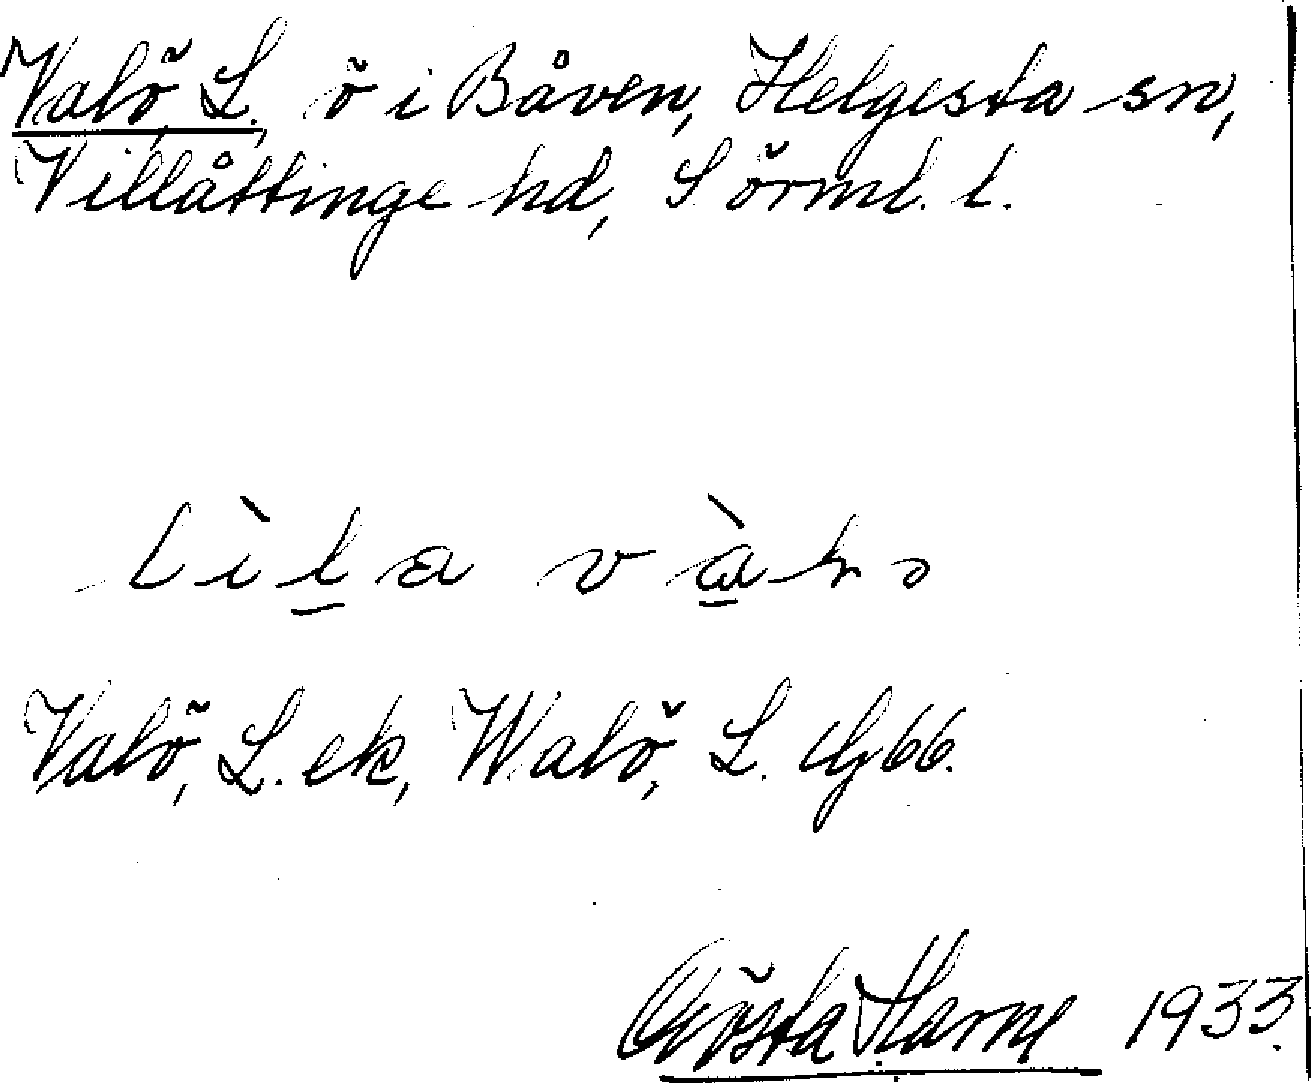 Valö, L., ö i Båven, Helgesta sn,
Villåttinge hd, Sörml. l.
lìla
Valö, L. ek, Walö, L. Gj 66.
Gösta Harne 1933.